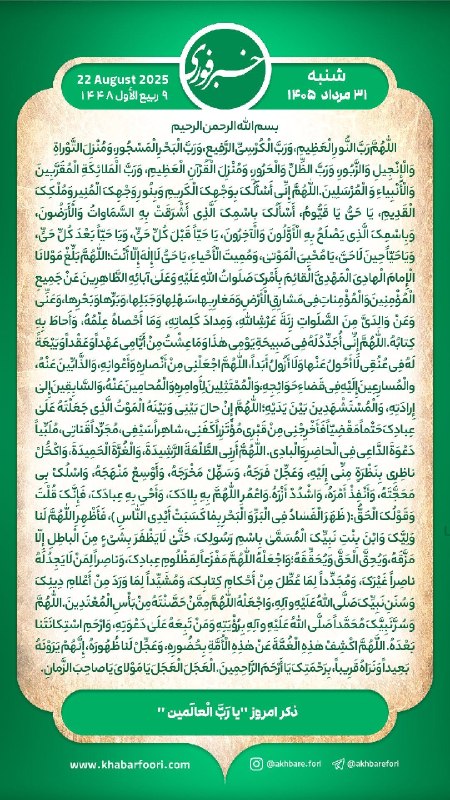 شنبه
۳۱ مرداد ۱۴۰۵
خبرفوری
22 August 2025
۹ ربیع الأول ۱۴۴۸
بسم الله الرحمن الرحیم
اللهُمَّ رَبَّ النُّورِ الْعَظِيمِ، وَرَبَّ الْكُرْسِيِّ الرَّفِيعِ، وَرَبَّ الْبَحْرِ الْمَسْجُورِ، وَمُنْزِلَ التَّوْرَاةِ
وَالْإِنْجِيلِ وَالزَّبُورِ، وَرَبَّ الظِّلِّ وَالْحَرُورِ، وَمُنْزِلَ الْقُرْآنِ الْعَظِيمِ، وَرَبَّ الْمَلائِكَةِ الْمُقَرَّبِينَ
وَالْأَنْبِياءِ وَ الْمُرْسَلِينَ. اللهُمَّ إِنِّي أَسْأَلُكَ بِوَجْهِكَ الْكَرِيمِ وَبِنُورِ وَجْهِكَ الْمُنِيرِ وَمُلْكِكَ
الْقَدِيمِ، يَا حَيُّ يَا قَيُّومُ، أَسْأَلُكَ بِاسْمِكَ الَّذِي أَشْرَقَتْ بِهِ السَّمَاوَاتُ وَالْأَرَضُونَ،
وَبِاسْمِكَ الَّذِي يَصْلَحُ بِهِ الْأَوَّلُونَ وَالْآخِرُونَ، يَا حَيّاً قَبْلَ كُلِّ حَيٍّ، وَيَا حَيّاً بَعْدَ كُلِّ حَيٍّ،
وَيَا حَيّاً حِينَ لَا حَيَّ، يَا مُحْيِيَ الْمَوْتىٰ، وَمُمِيتَ الْأَحْيَاءِ، يَا حَيُّ لَا إِلٰهَ إِلّا أَنْتَ؛ اللهُمَّ بَلِّغْ مَوْلانَا
الْإِمامَ الْهادِيَ الْمَهْدِيَّ الْقائِمَ بِأَمْرِكَ صَلَواتُ اللهِ عَلَيْهِ وَعَلىٰ آبائِهِ الطَّاهِرِينَ عَنْ جَمِيعِ
الْمُؤْمِنِينَ وَالْمُؤْمِناتِ فِي مَشارِقِ الْأَرْضِ وَمَغارِبِها، سَهْلِها وَجَبَلِها، وَبَرِّها وَبَحْرِها، وَعَنِّي
وَعَنْ وَالِدَيَّ مِنَ الصَّلَواتِ زِنَةَ عَرْشِ اللهِ، وَمِدادَ كَلِماتِهِ، وَمَا أَحْصاهُ عِلْمُهُ، وَأَحاطَ بِهِ
كِتابُهُ. اللهُمَّ إِنِّي أُجَدِّدُ لَهُ فِي صَبِيحَةِ يَوْمِي هٰذَا وَمَا عِشْتُ مِنْ أَيَّامِي عَهْداً وَعَقْداً وَبَيْعَةً
لَهُ فِي عُنُقِي لَا أَحُولُ عَنْها وَلا أَزُولُ أَبَداً، اللهُمَّ اجْعَلْنِي مِنْ أَنْصارِهِ وَأَعْوانِهِ، وَالذَّابِّينَ عَنْهُ،
وَالْمُسارِعِينَ إِلَيْهِ فِي قَضاءِ حَوَائِجِهِ، وَالْمُمْتَثِلِينَ لِأَوامِرِهِ وَالْمُحامِينَ عَنْهُ، وَالسَّابِقِينَ إِلىٰ
إِرَادَتِهِ، وَالْمُسْتَشْهَدِينَ بَيْنَ يَدَيْهِ؛ اللهُمَّ إِنْ حالَ بَيْنِي وَبَيْنَهُ الْمَوْتُ الَّذِي جَعَلْتَهُ عَلىٰ
عِبادِكَ حَتْماً مَقْضِيّاً فَأَخْرِجْنِي مِنْ قَبْرِي مُؤْتَزِراً كَفَنِي، شاهِراً سَيْفِي، مُجَرِّداً قَناتِي، مُلَبِّياً
دَعْوَةَ الدَّاعِي فِي الْحاضِرِ وَالْبادِي. اللهُمَّ أَرِنِي الطَّلْعَةَ الرَّشِيدَةَ، وَالْغُرَّةَ الْحَمِيدَةَ، وَاكْحُلْ
ناظِرِي بِنَظْرَةٍ مِنِّي إِلَيْهِ، وَعَجِّلْ فَرَجَهُ، وَسَهِّلْ مَخْرَجَهُ، وَأَوْسِعْ مَنْهَجَهُ، وَاسْلُكْ بِي
مَحَجَّتَهُ، وَأَنْفِذْ أَمْرَهُ، وَاشْدُدْ أَزْرَهُ، وَاعْمُرِ اللهُمَّ بِهِ بِلادَكَ، وَأَحْيِ بِهِ عِبادَكَ، فَإِنَّكَ قُلْتَ
وَقَوْلُكَ الْحَقُّ: ﴿ظَهَرَ الْفَسادُ فِي الْبَرِّ وَالْبَحْرِ بِمَا كَسَبَتْ أَيْدِي النَّاسِ﴾، فَأَظْهِرِ اللهُمَّ لَنا
وَلِيَّكَ وَابْنَ بِنْتِ نَبِيِّكَ الْمُسَمَّىٰ بِاسْمِ رَسُولِكَ، حَتَّىٰ لَا يَظْفَرَ بِشَيْءٍ مِنَ الْباطِلِ إِلّا
مَزَّقَهُ، وَيُحِقَّ الْحَقَّ وَيُحَقِّقَهُ؛ وَاجْعَلْهُ اللهُمَّ مَفْزَعاً لِمَظْلُومِ عِبادِكَ، وَناصِراً لِمَنْ لَا يَجِدُ لَهُ
ناصِراً غَيْرَكَ، وَمُجَدِّداً لِمَا عُطِّلَ مِنْ أَحْكامِ كِتابِكَ، وَمُشَيِّداً لِمَا وَرَدَ مِنْ أَعْلامِ دِينِكَ
وَسُنَنِ نَبِيِّكَ صَلَّى اللهُ عَلَيْهِ وَآلِهِ، وَاجْعَلْهُ اللهُمَّ مِمَّنْ حَصَّنْتَهُ مِنْ بَأْسِ الْمُعْتَدِينَ، اللهُمَّ
وَسُرَّ نَبِيَّكَ مُحَمَّداً صَلَّى اللهُ عَلَيْهِ وَآلِهِ بِرُؤْيَتِهِ وَمَنْ تَبِعَهُ عَلىٰ دَعْوَتِهِ، وَارْحَمِ اسْتِكانَتَنا
بَعْدَهُ. اللهُمَّ اكْشِفْ هٰذِهِ الْغُمَّةَ عَنْ هٰذِهِ الْأُمَّةِ بِحُضُورِهِ، وَعَجِّلْ لَنا ظُهُورَهُ، إِنَّهُمْ يَرَوْنَهُ
بَعِيداً وَنَرَاهُ قَرِيباً، بِرَحْمَتِكَ يَا أَرْحَمَ الرَّاحِمِينَ. الْعَجَلَ الْعَجَلَ يَا مَوْلايَ يَا صاحِبَ الزَّمانِ.
ذکر امروز "یا رَبَّ الْعالَمین"
www.khabarfoori.com
@akhbare.fori
@akhbarefori